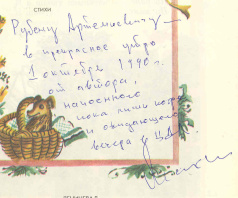 СТИХИ
Рубену Артемьевичу —
в прекрасное утро
1 октября 1990 г.
от автора,
пока лишь кофе
и ожидающего
вечера в ЦД